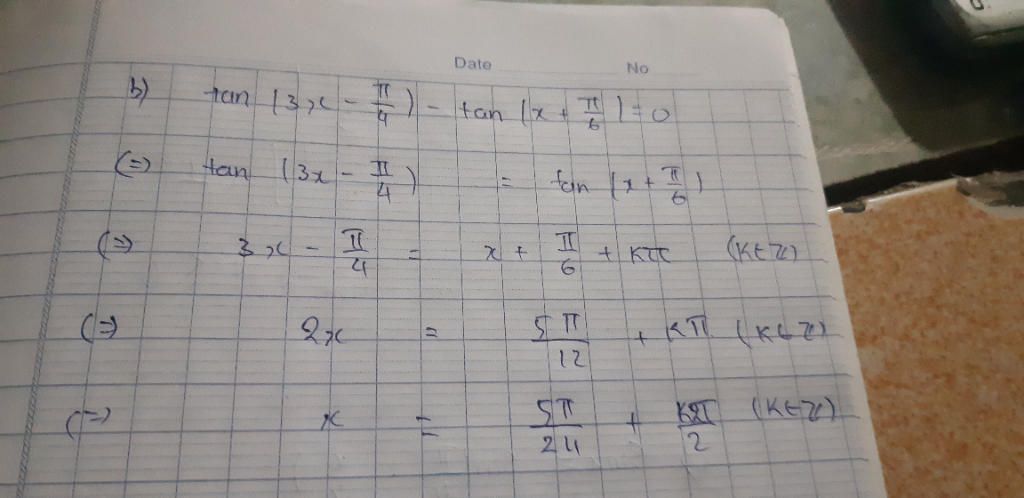 Date No
b) tan (3x - π/4) - tan (x + π/6) = 0
(=) tan (3x - π/4) = tan (x + π/6)
(=) 3x - π/4 = x + π/6 + kπ (k∈Z)
(=) 2x = 5π/12 + kπ (k∈Z)
(=) x = 5π/24 + kπ/2 (k∈Z)